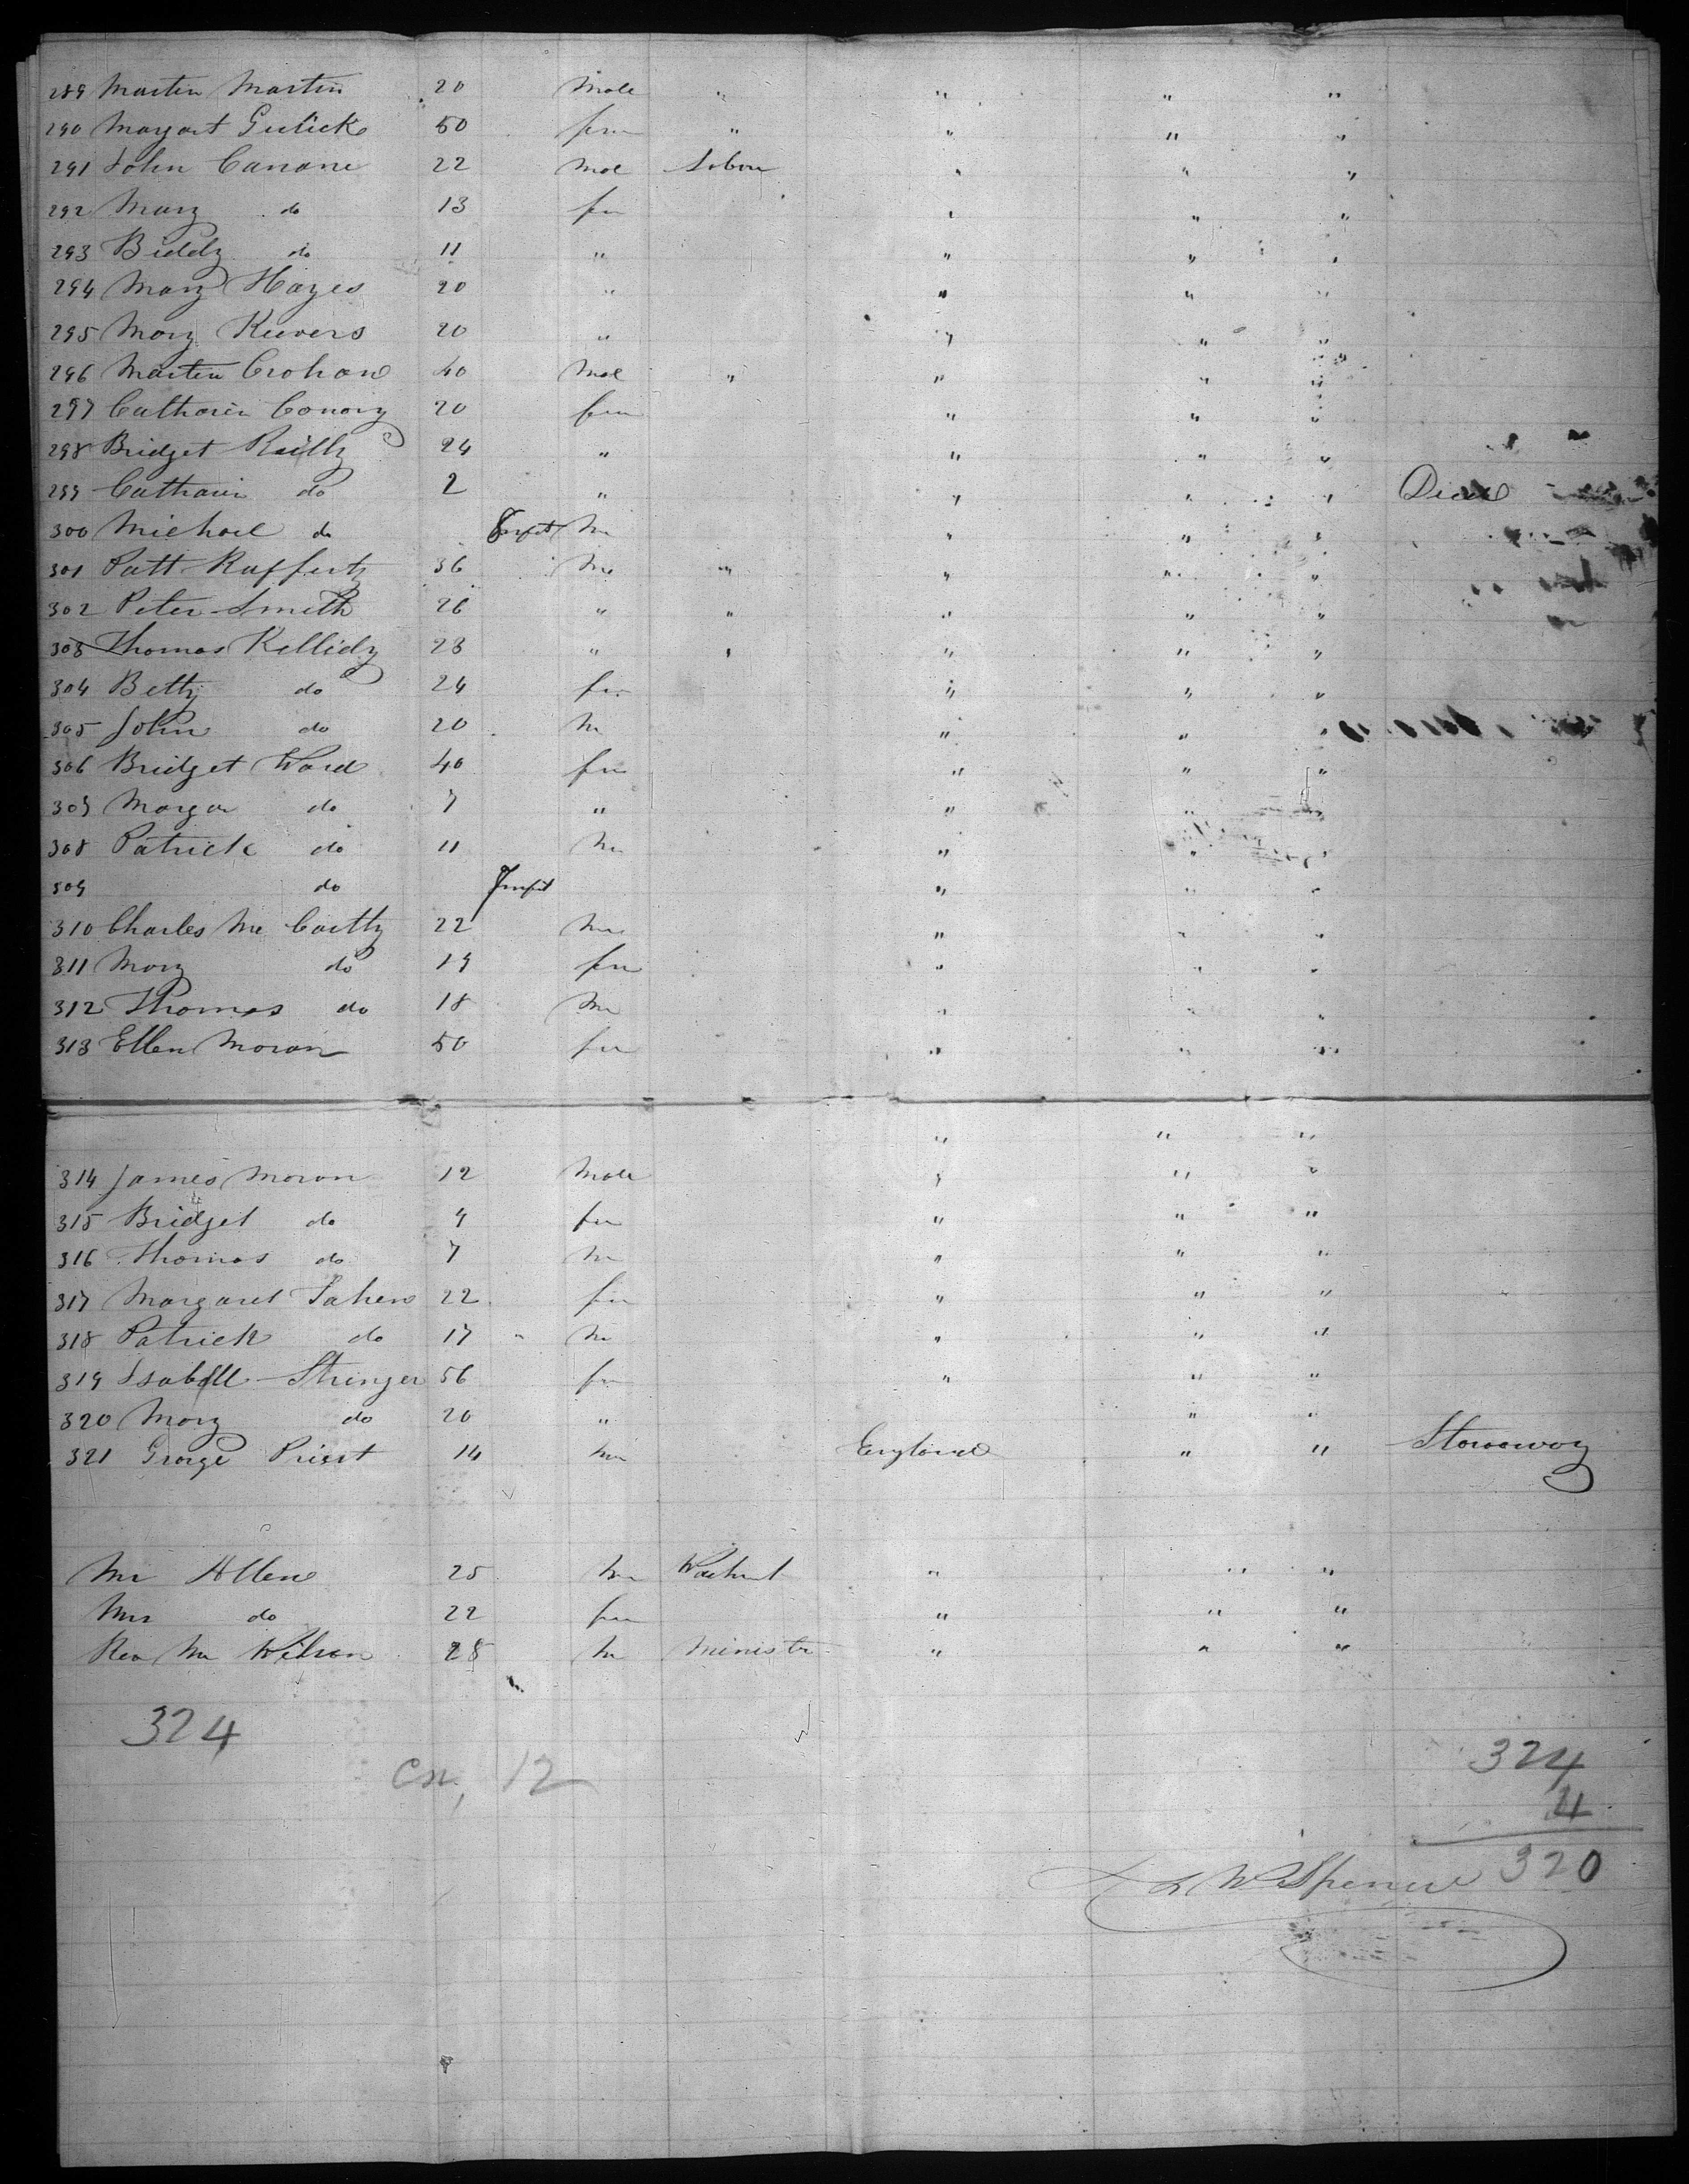 289 Martin Martin 20 Male " " " "
290 Margart Gulick 50 fem " " " "
291 John Canane 22 Mal Labou " " "
292 Mary do 13 fm " " "
293 Biddy do 11 " " " "
294 Mary Hayes 20 " " " "
295 Mary Keevers 20 " " " "
296 Martin Crohan 40 Mal " " " "
297 Catharin Conary 20 fem " " "
298 Bridget Reilly 24 " " " "
299 Catharin do 2 " " " " Died
300 Michael do Infnt M " " "
301 Patt Rafferty 36 M " " " "
302 Peter Smith 26 " " " " "
303 Thomas Kellidy 23 " " " " "
304 Betty do 24 fm " " "
305 John do 20 M " " "
306 Bridget Ward 40 fm " " "
307 Margar do 7 " " " "
308 Patrick do 11 M " " "
309 do Infnt " " "
310 Charles Mc Carthy 22 M " " "
311 Mary do 19 fm " " "
312 Thomas do 18 M " " "
313 Ellen Moran 50 fm " " "
" " "
314 James Moran 12 Male " " "
315 Bridget do 9 fm " " "
316 Thomas do 7 M " " "
317 Margaret Fahen 22 fm " " "
318 Patrick do 17 M " " "
319 Isabell Stringer 56 fm " " "
320 Mary do 20 " " "
321 George Priest 14 M England " " Stowaway
Mr Allen 25 M " " "
Mrs do 22 fm " " "
Rev Mr Wilson 28 M Ministr " " "
324
324
12
4
320
W Spencer